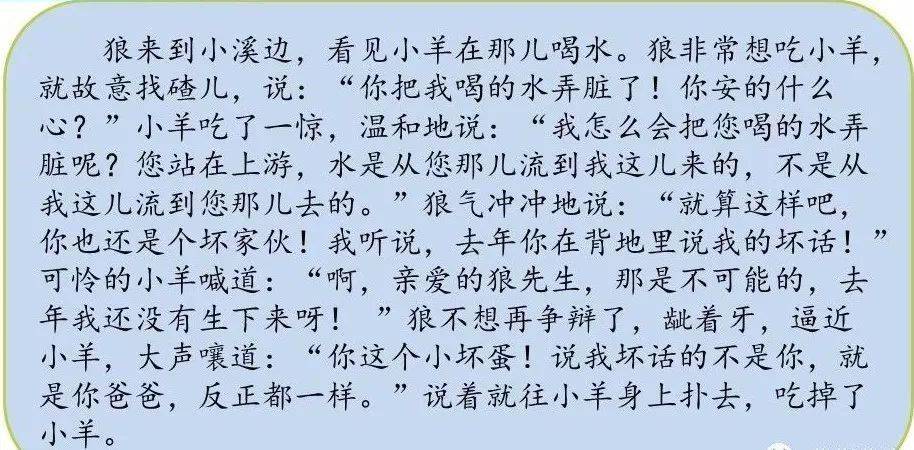 狼来到小溪边，看见小羊在那儿喝水。狼非常想吃小羊，
就故意找碴儿，说：“你把我喝的水弄脏了！你安的什么
心？”小羊吃了一惊，温和地说：“我怎么会把您喝的水弄
脏呢？您站在上游，水是从您那儿流到我这儿来的，不是从
我这儿流到您那儿去的。”狼气冲冲地说：“就算这样吧，
你也还是个坏家伙！我听说，去年你在背地里说我的坏话！”
可怜的小羊喊道：“啊，亲爱的狼先生，那是不可能的，去
年我还没有生下来呀！ ”狼不想再争辩了，龇着牙，逼近
小羊，大声嚷道：“你这个小坏蛋！说我坏话的不是你，就
是你爸爸，反正都一样。”说着就往小羊身上扑去，吃掉了
小羊。